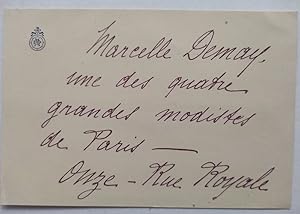 Marcelle Demay.
une des quatre
grandes modistes
de Paris —
Onze - Rue Royale